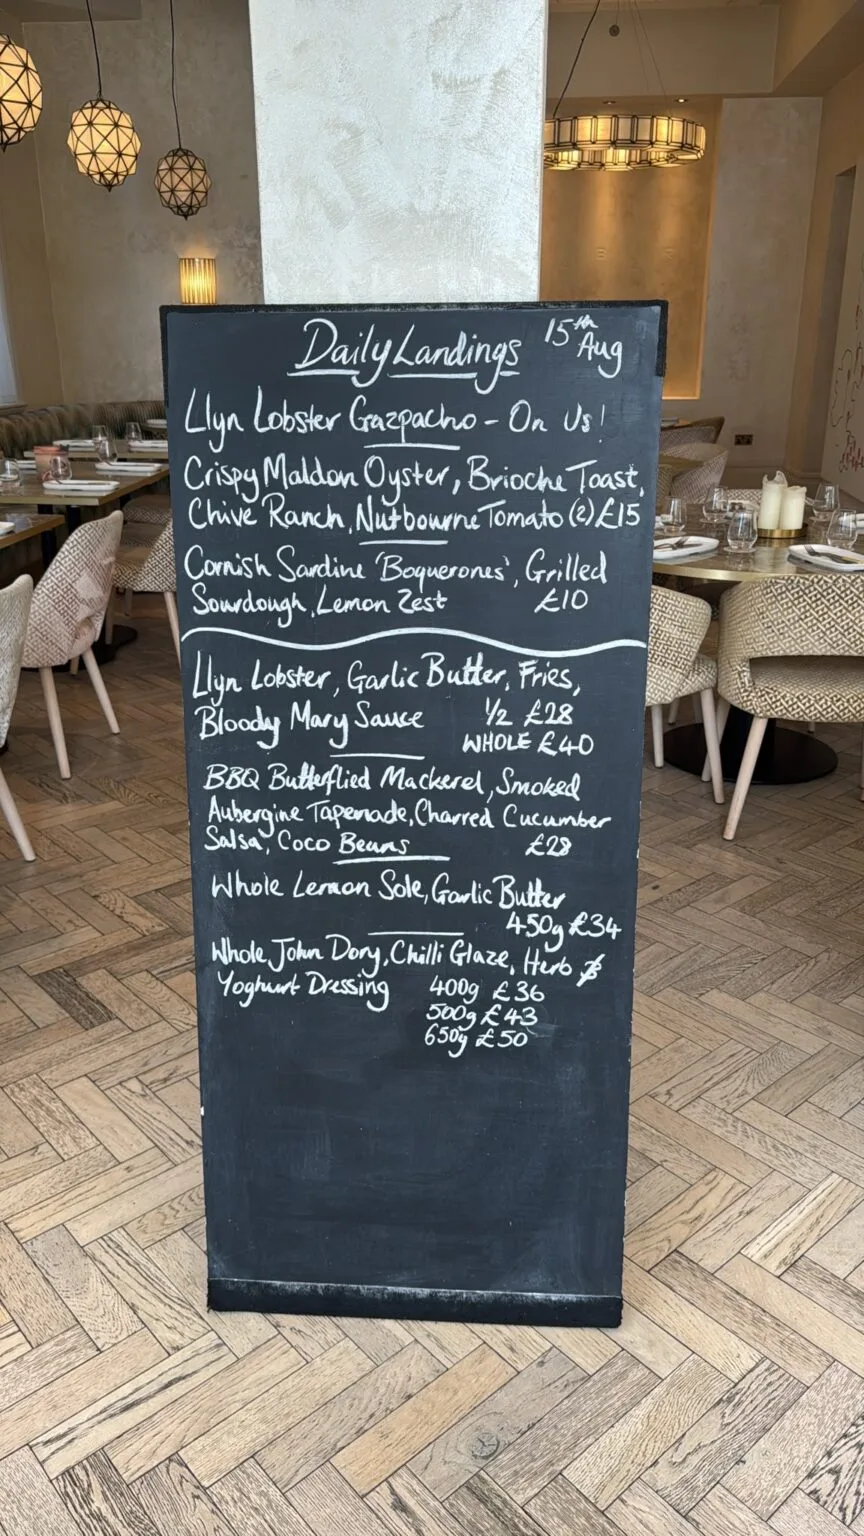 Daily Landings 15th Aug
Llyn Lobster Gazpacho - On Us!
Crispy Maldon Oyster, Brioche Toast,
Chive Ranch, Nutbourne Tomato (2) £15
Cornish Sardine 'Boquerones', Grilled
Sourdough, Lemon Zest £10
Llyn Lobster, Garlic Butter, Fries,
Bloody Mary Sauce 1/2 £28
WHOLE £40
BBQ Butterflied Mackerel, Smoked
Aubergine Tapenade, Charred Cucumber
Salsa, Coco Beans £28
Whole Lemon Sole, Garlic Butter
450g £34
Whole John Dory, Chilli Glaze, Herb &
Yoghurt Dressing 400g £36
500g £43
650g £50